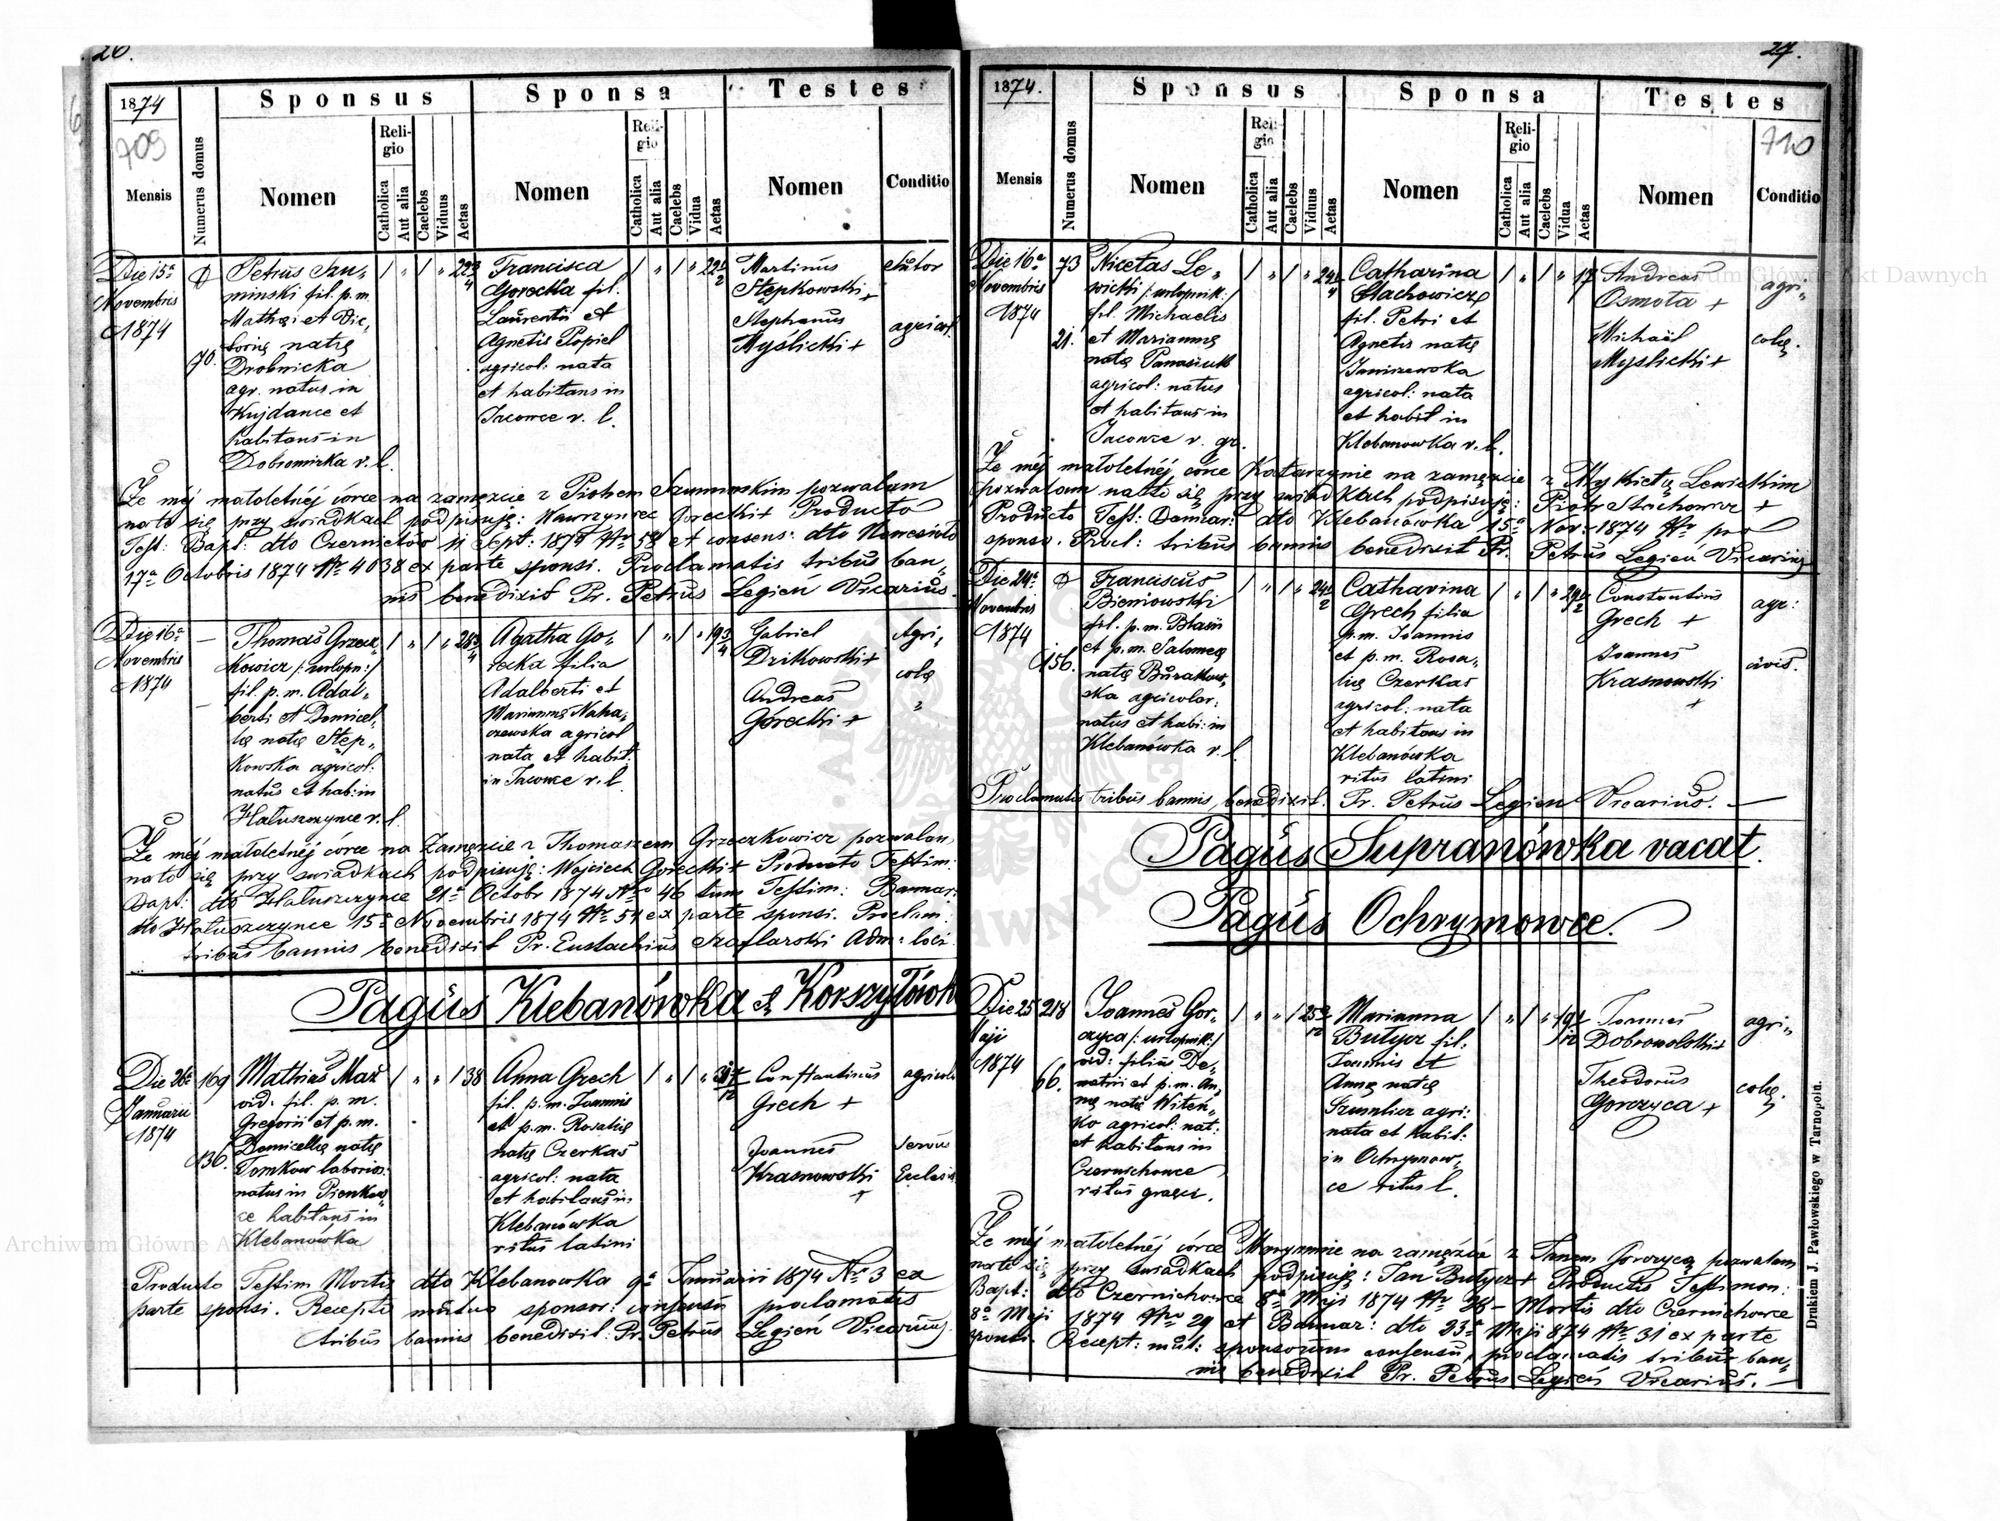 26.
1874
709
Mensis
Numerus domus
Sponsus
Nomen
Religio
Catholica
Aut alia
Caelebs
Viduus
Aetas
Sponsa
Nomen
Religio
Catholica
Aut alia
Caelebs
Vidua
Aetas
Testes
Nomen
Conditio
Die 15a
Novembris
1874
70.
Petrus Szu„
minski fil. p. m.
Mathei et Vic„
torię natę
Drobnicka
agr. natus in
Kujdance et
habitans in
Dobromirka r. l.
Francisca
Gorecka fil.
Laurentii et
Agnetis Popiel
agricol: nata
et habitans in
Jacowce r. l.
Martinus
Stepkowski +
Stephanus
Myslicki +
sutor
agricol.
Że méj małoletnéj córce na zamęzcie z Piotrem Szuminskim pozwalam
na to się przy swiadkach podpisuję: Wawrzyniec Gorecki + Producto
Test: Bapt: dto Czernielów 11 Sept: 1874 Nr 58 et consens. dto
17a Octobris 1874 Nr 4038 ex parte sponsi. Proclamatis tribus ban„
nis benedixit Pr. Petrus Legień Vicarius.
Die 16a
Novembris
1874
Thomas Grzecz„
kowicz /: urlopn:/
fil. p. m. Adal„
berti et Domicel„
lę natę Step„
kowska agricol:
natus et hab: in
Hałuszczynce r. l.
28 3/4
Agatha Go„
recka filia
Adalberti et
Mariannę Naha„
czewska agricol
nata et habit:
in Jacowce r. l.
19 3/4
Gabriel
Dzikowski +
Andreas
Gorecki +
Agri„
colę
Że méj małoletnéj córce na Zamęzcie z Thomaszem Grzeczkowicz pozwalam
na to się przy swiadkach podpisuję: Wojciech Gorecki + Producto Testim:
Bapt: dto Hałuszczynce 21a Octobr 1874 Nro 46 tum Testim: Bannar:
dto Hałuszczynce 15a Novembris 1874 Nr 54 ex parte sponsi. Proclam:
tribus bannis benedixit Pr. Eustachius Szaflarski Adm: loci.
Pagus Klebanówka et Korszyłówk
Die 26a
Januarii
1874
169
136.
Mathias Maz
vid: fil. p. m.
Gregorii et p. m.
Domicellę natę
Tomkow laborios:
natus in Pienkow„
ce habitans in
Klebanówka
38
Anna Grech
fil. p. m. Joannis
et p. m. Rosalię
natę Czerkas
agricol: nata
et habitans in
Klebanówka
ritus latini
Constantinus
Grech +
Joannes
Krasnowski
+
agricola
servus
Ecclesię
Producto Testim Mortis dto Klebanowka 9a Januarii 1874 Nr 3 ex
parte sponsi. Recepto mutuo sponsor: consensu proclamatis
tribus bannis benedixit: Pr. Petrus Legień Vicarius.
27.
1874.
710
Mensis
Numerus domus
Sponsus
Nomen
Religio
Catholica
Aut alia
Caelebs
Viduus
Aetas
Sponsa
Nomen
Religio
Catholica
Aut alia
Caelebs
Vidua
Aetas
Testes
Nomen
Conditio
Die 16a
Novembris
1874
73
21.
Nicetas Le„
wicki /: urlopnik:/
fil. Michaelis
et Mariannę
natę Panasiuk
agricol: natus
et habitans in
Jacowce r. gr.
Catharina
Stachowicz
fil. Petri et
Agnetis natę
Janiszewska
agricol: nata
et habit in
Klebanowka r. l.
17
Andreas
Osmota +
Michaël
Myslicki +
agri„
colę.
Że méj małoletnéj córce Katarzynie na zamęzcie z Mykietą Lewickim
pozwalam na to się przy swiadkach podpisuję: Piotr Stachowicz +
Producto Test: Bannar: dto Klebanówka 15a Nov. 1874 Nr pro
sponso. Procl: tribus bannis benedixit Pr. Petrus Legień Vicarius
Die 24a
Novembris
1874
156.
Franciscus
Bieniowski
fil. p. m. Blasii
et p. m. Salomeę
natę Burakow„
ska agricolar:
natus et habi: in
Klebanówka r. l.
Catharina
Grech filia
p. m. Joannis
et p. m. Rosa„
lię Czerkas
agricol: nata
et habitans in
Klebanówka
ritus latini
Constantinus
Grech +
Joannes
Krasnowski
+
agr:
civis.
Proclamatis tribus bannis benedixit. Pr. Petrus Legien Vicarius. —
Pagus Supranówka vacat.
Pagus Ochrymowce.
Die 25
Maji
1874
218
66.
Joannes Gor„
czyca /: urlopnik:/
vid: filius De„
metrii et p. m. An„
nę natę Witeń„
ko agricol: nat:
et habitans in
Czernichowce
ritus graeci.
Marianna
Butycz fil.
Joannis et
Annę natę
agri:
nata et habit:
in Ochrymow„
ce ritus l.
Joannes
Dobrowolski +
Theodorus
Gorczyca +
agri„
colę.
Że méj małoletnéj córce Maryannie na zamęzcie z Janem Gorczycą pozwalam
na to się przy swiadkach podpisuję: Jan Butycz + Productis Testimon:
Bapt: dto Czernichowce 8a Maji 1874 Nr 28 – Mortis dto Czernichowce
8a Maji 1874 Nr 29 et Bannar: dto 23a Maji 874 Nr 31 ex parte
sponsi. Recept: mut: sponsorum consensu, proclamatis tribus ban„
nis benedixit Pr. Petrus Legień Vicarius. —
Drukiem J. Pawłowskiego w Tarnopolu.
Archiwum Główne Akt Dawnych
Archiwum Główne Akt Dawnych